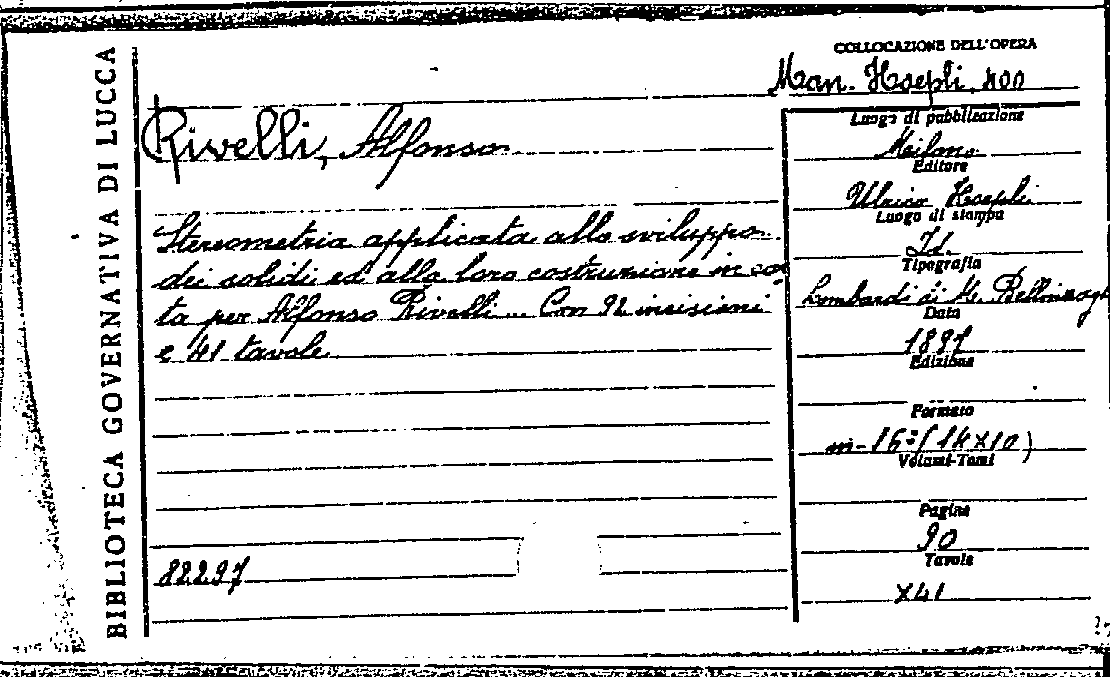 BIBLIOTECA GOVERNATIVA DI LUCCA
COLLOCAZIONE DELL'OPERA
Man. Hoepli. 400
Rivelli, Alfonso
Stereometria applicata allo sviluppo
dei solidi ed alla loro costruzione in car
ta per Alfonso Rivelli ... Con 92 incisioni
e 41 tavole
88297
Luogo di pubblicazione
Milano
Editore
Ulrico Hoepli
Luogo di stampa
Id.
Tipografia
Lombardi di M. Bellinzaghi
Data
1897
Edizione
Formato
in-16º (14x10)
Volumi-Tomi
Pagine
90
Tavole
X41